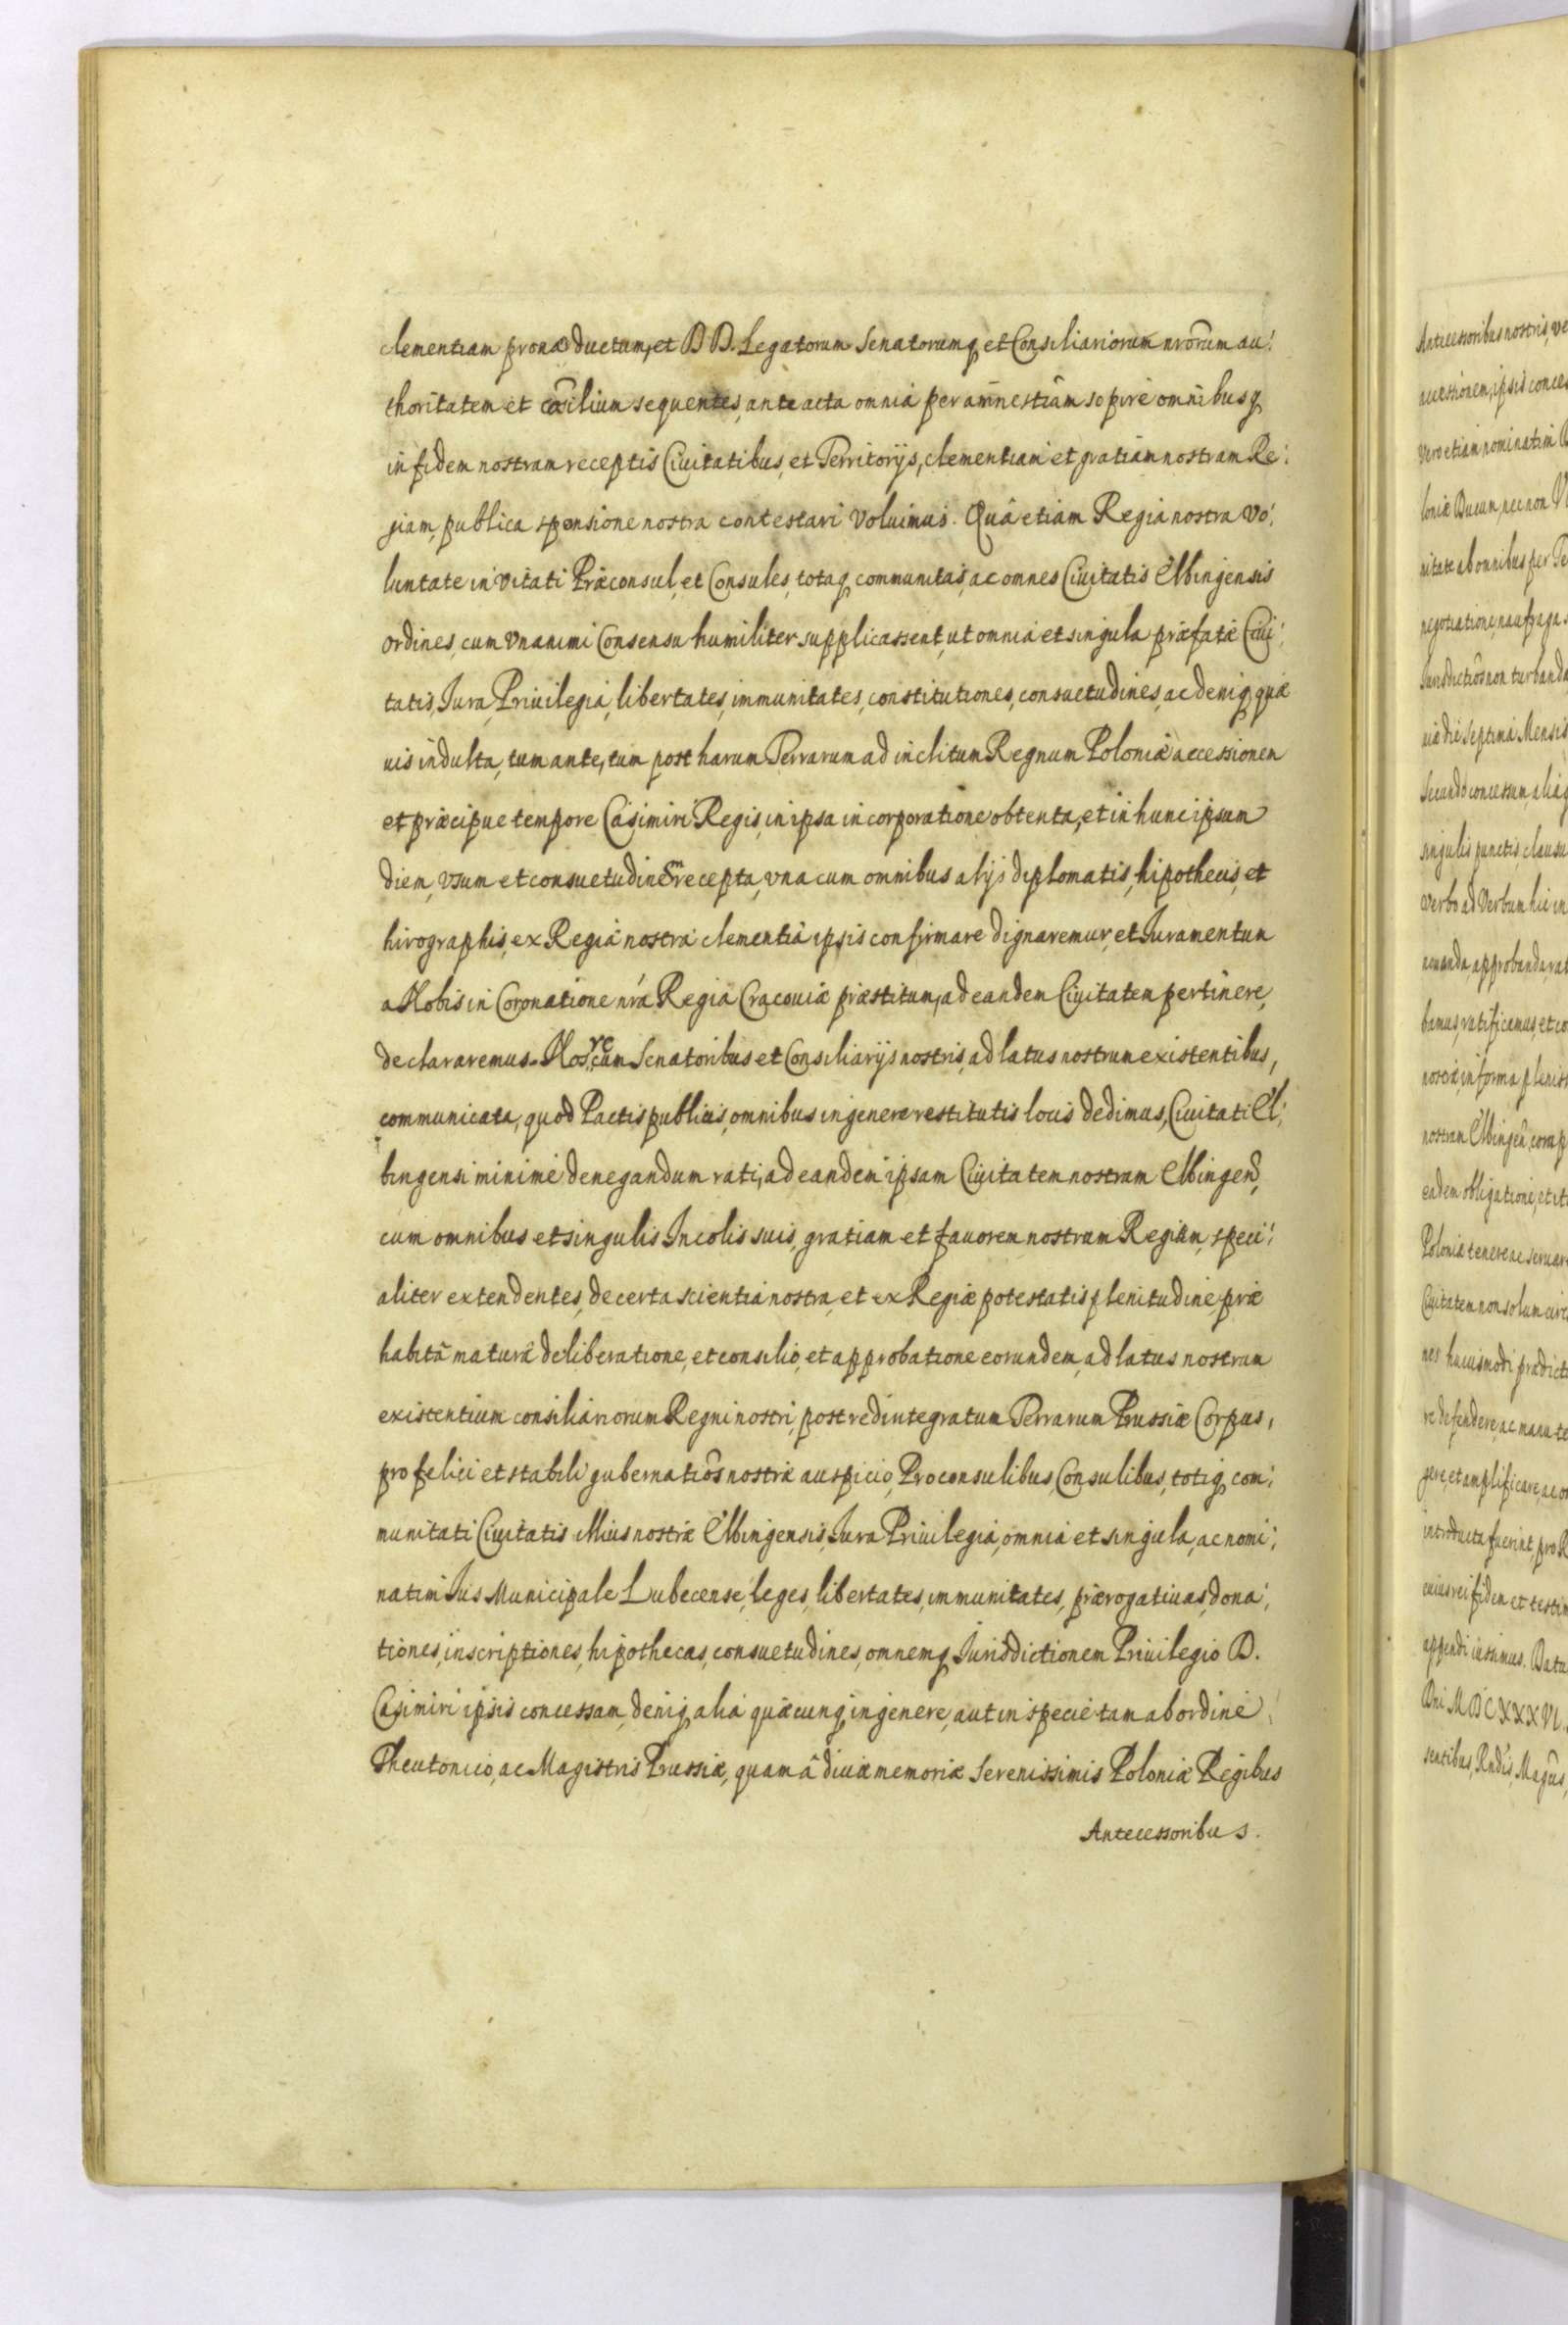 clementiam pronæ ductum, et D D. Legatorum Senatorumq et Consiliariorum nrõrum au:
thoritatem et cõsilium sequentes, ante acta omnia per amnestiam sopire omnibusq
in fidem nostram receptis Ciuitatibus, et Territorijs, clementiam et gratiam nostram Re:
giam, publica sponsione nostra contestari Voluimus. Quâ etiam Regia nostra Vo:
luntate invitati Præconsul, et Consules, totaq communitas, ac omnes Ciuitatis Elbingensis
ordines, cum Vnanimi Consensu humiliter supplicassent, ut omnia et singula præfatæ Ciui:
tatis, Iura, Priuilegia, libertates, immunitates, constitutiones, consuetudines, ac deniq quæ
uis indulta, tum ante, tum post harum Terrarum ad inclitum Regnum Poloniæ accessionem
et præcipue tempore Casimiri Regis, in ipsa incorporatione obtenta, et in hunc ipsum
diem, Vsum et consuetudinem recepta, vna cum omnibus alijs diplomatis, hipothecis, et
hirographis, ex Regia nostra clementia ipsis confirmare dignaremur, et Iuramentum
a Nobis in Coronatione nrá Regia Cracouiæ præstitum, ad eandem Ciuitatem pertinere,
declararemus. Nos re cum Senatoribus et Consiliarijs nostris, ad latus nostrum existentibus,
communicata, quod Pactis publicis, omnibus in genere restitutis locis dedimus, Ciuitati El:
bingensi minime denegandum rati, ad eandem ipsam Ciuitatem nostram Elbingen,
cum omnibus et singulis Incolis suis, gratiam et fauorem nostrum Regium, speci:
aliter extendentes, de certa scientia nostra, et ex Regiæ potestatis plenitudine, præ
habitâ maturâ deliberatione, et consilio, et approbatione eorundem, ad latus nostrum
existentium consiliariorum Regni nostri, post redintegratum Terrarum Prussiæ Corpus,
pro felici et stabili gubernatiõs nostræ auspicio, Proconsulibus, Consulibus, totiq com:
munitati Ciuitatis illius nostræ Elbingensis, Iura Priuilegia, omnia et singula, ac nomi:
natim Ius Municipale Lubecense, leges, libertates, immunitates, prærogatiuas, dona:
tiones, inscriptiones, hipothecas, consuetudines, omnemq Iurisdictionem Priuilegio D.
Casimiri ipsis concessam, deniq alia quæcunq in genere, aut in specie tam ab ordine
Theutonico, ac Magistris Prussiæ, quam â diuæ memoriæ Serenissimis Poloniæ Regibus
Antecessoribus.
Antecessoribus nostris, ve
accessionem, ipsis conces
vero etiam nominatim
loniæ Ducum, nec non
nitate ab omnibus per
negotiatione, naufraga
Iurisdictiõs non turbanda
uiæ die Septima Mensis
Secundo concessum, aliaq
singulis punctis clausu
Verbo ad Verbum hic in
approbanda, rat
bamus, ratificamus, et co
in forma pleniss
nostram Elbingen
eadem obligatione, et
Poloniæ tenere ac seruar
Ciuitatem non solum circa
nes huiusmodi prædict
re defendere, ac manute
gere, et amplificare, ac
introducta fuerint, pro R
cuius rei fidem et testim
appendi iussimus. Datu
Dni M DC XXX VI.
sentibus, Rndis, Magcis,